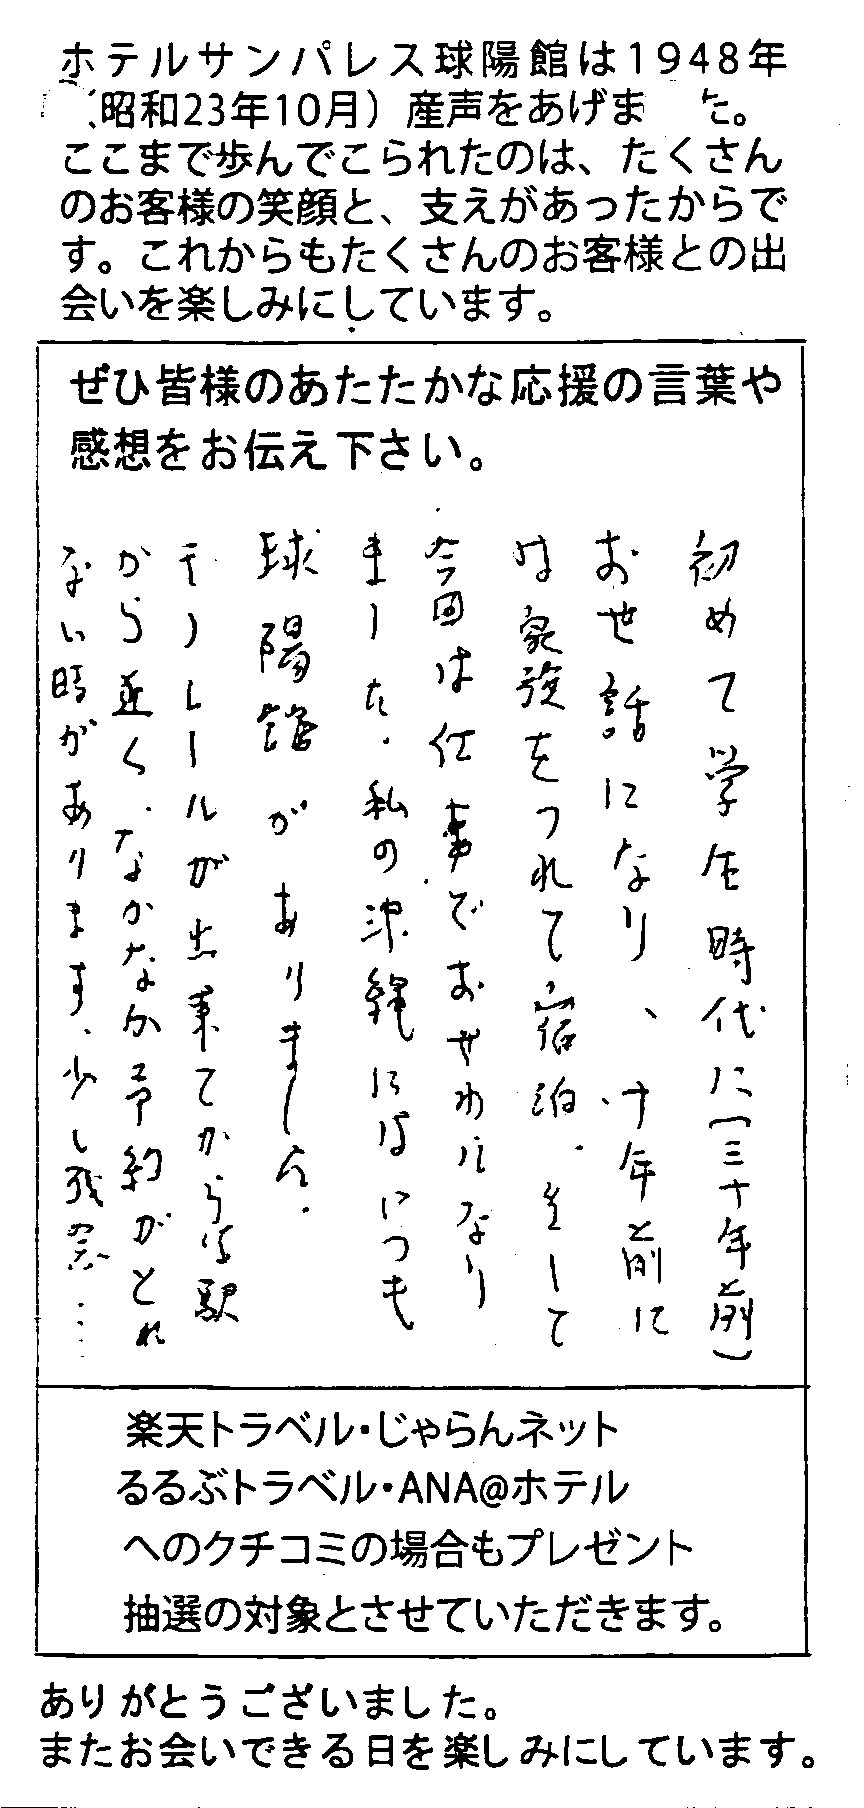 ホテルサンパレス球陽館は1948年
(昭和23年10月）産声をあげま た。
ここまで歩んでこられたのは、たくさん
のお客様の笑顔と、支えがあったからで
す。これからもたくさんのお客様との出
会いを楽しみにしています。
ぜひ皆様のあたたかな応援の言葉や
感想をお伝え下さい。
初めて学生時代に(三十年と前)
おせ話になり、十年と前に
は家族をつれて宿泊.そして
今回は仕事でおせわになり
ました.私の沖縄にはいつも
球陽館がありました.
モノレールが出来てからは駅
から近く、なかなか予約がとれ
ない時があります、少し残念....
楽天トラベル・じゃらんネット
るるぶトラベル・ANA@ホテル
へのクチコミの場合もプレゼント
抽選の対象とさせていただきます。
ありがとうございました。
またお会いできる日を楽しみにしています。